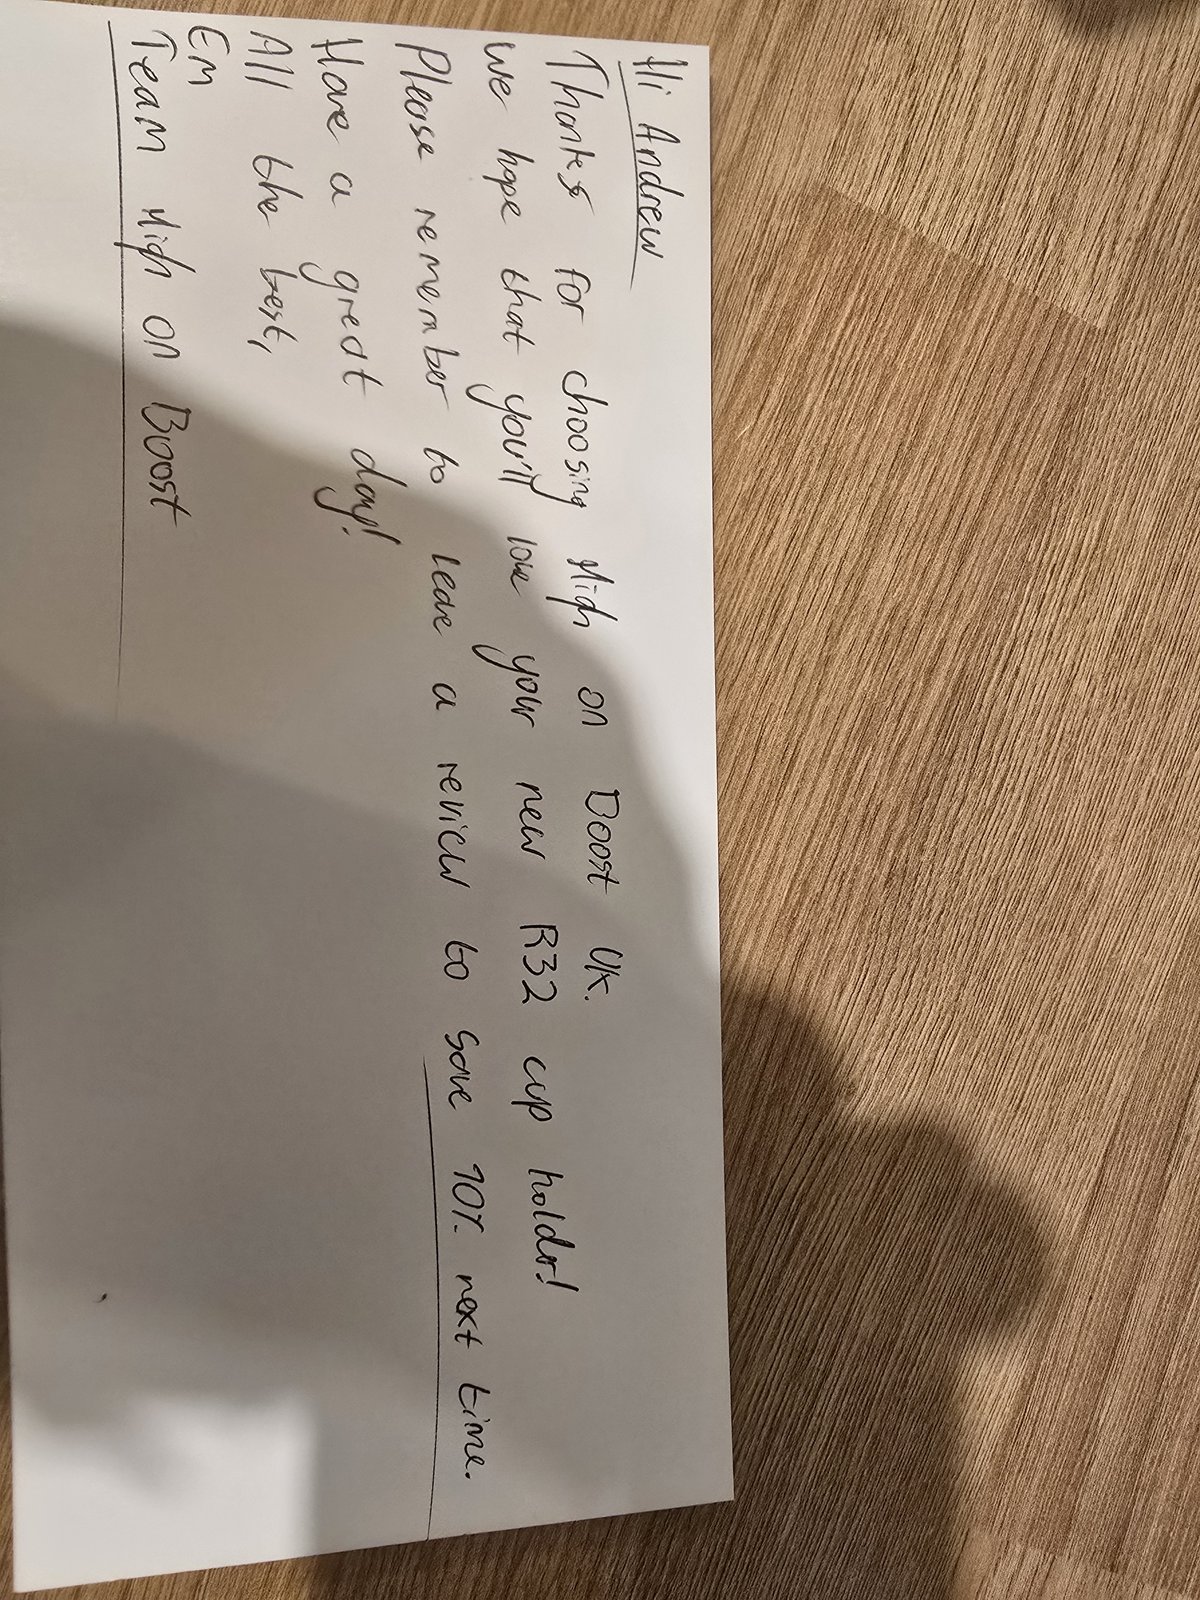 Hi Andrew
Thanks for choosing High on Boost UK.
We hope that you'll love your new R32 cup holder!
Please remember to leave a review to save 10% next time.
Have a great day!
All the best,
Em
Team High on Boost